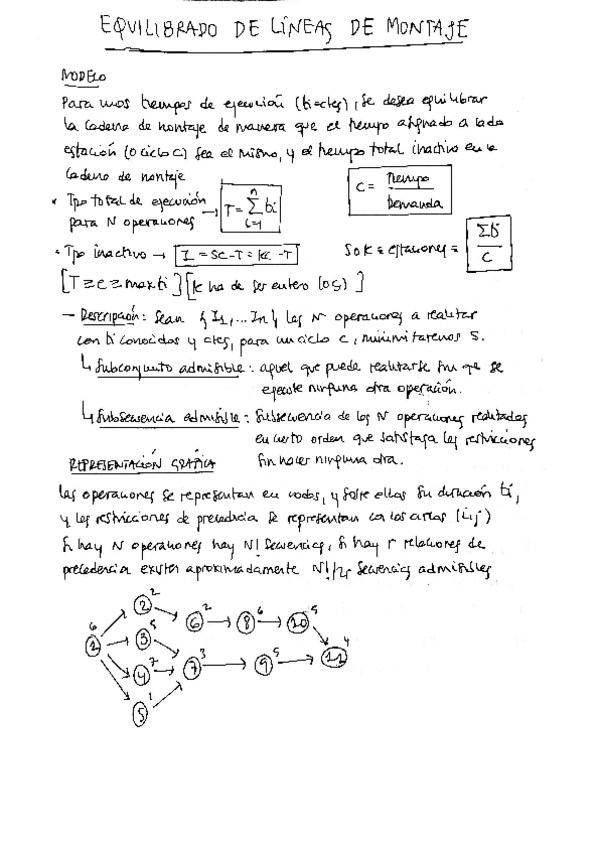 EQUILIBRADO DE LÍNEAS DE MONTAJE
MODELO
Para unos tiempos de ejecución (ti=ctes), se desea equilibrar
la cadena de montaje de manera que el tiempo asignado a cada
estación (o ciclo c) sea el mismo, y el tiempo total inactivo en la
cadena de montaje
• Tpo total de ejecución para N operaciones → T = Σ ti (i=1, n)
C = tiempo / Demanda
• Tpo inactivo → I = SC - T = KC - T
S o K = estaciones = Σti / C
[T ≥ c ≥ max ti] [K ha de ser entero (o S)]
- Descripción: Sean {I1, ... In} las N operaciones a realizar
con ti conocidos y ctes, para un ciclo c, minimizaremos S.
↳ Subconjunto admisible: aquel que puede realizarse sin que se
ejecute ninguna otra operación.
↳ Subsecuencia admisible: Subsecuencia de las N operaciones realizadas
en cierto orden que satisfaga las restricciones
sin hacer ninguna otra.
REPRESENTACIÓN GRÁFICA
Las operaciones se representan en nodos, y sobre ellas su duración ti,
y las restricciones de precedencia se representan con los arcos (i,j)
Si hay N operaciones hay N! secuencias, si hay r relaciones de
precedencia existen aproximadamente N!/2r secuencias admisibles
6 2 2 2 6 5
1 3 5 6 8 10 4
4 7 7 3 9 5 11
5 1